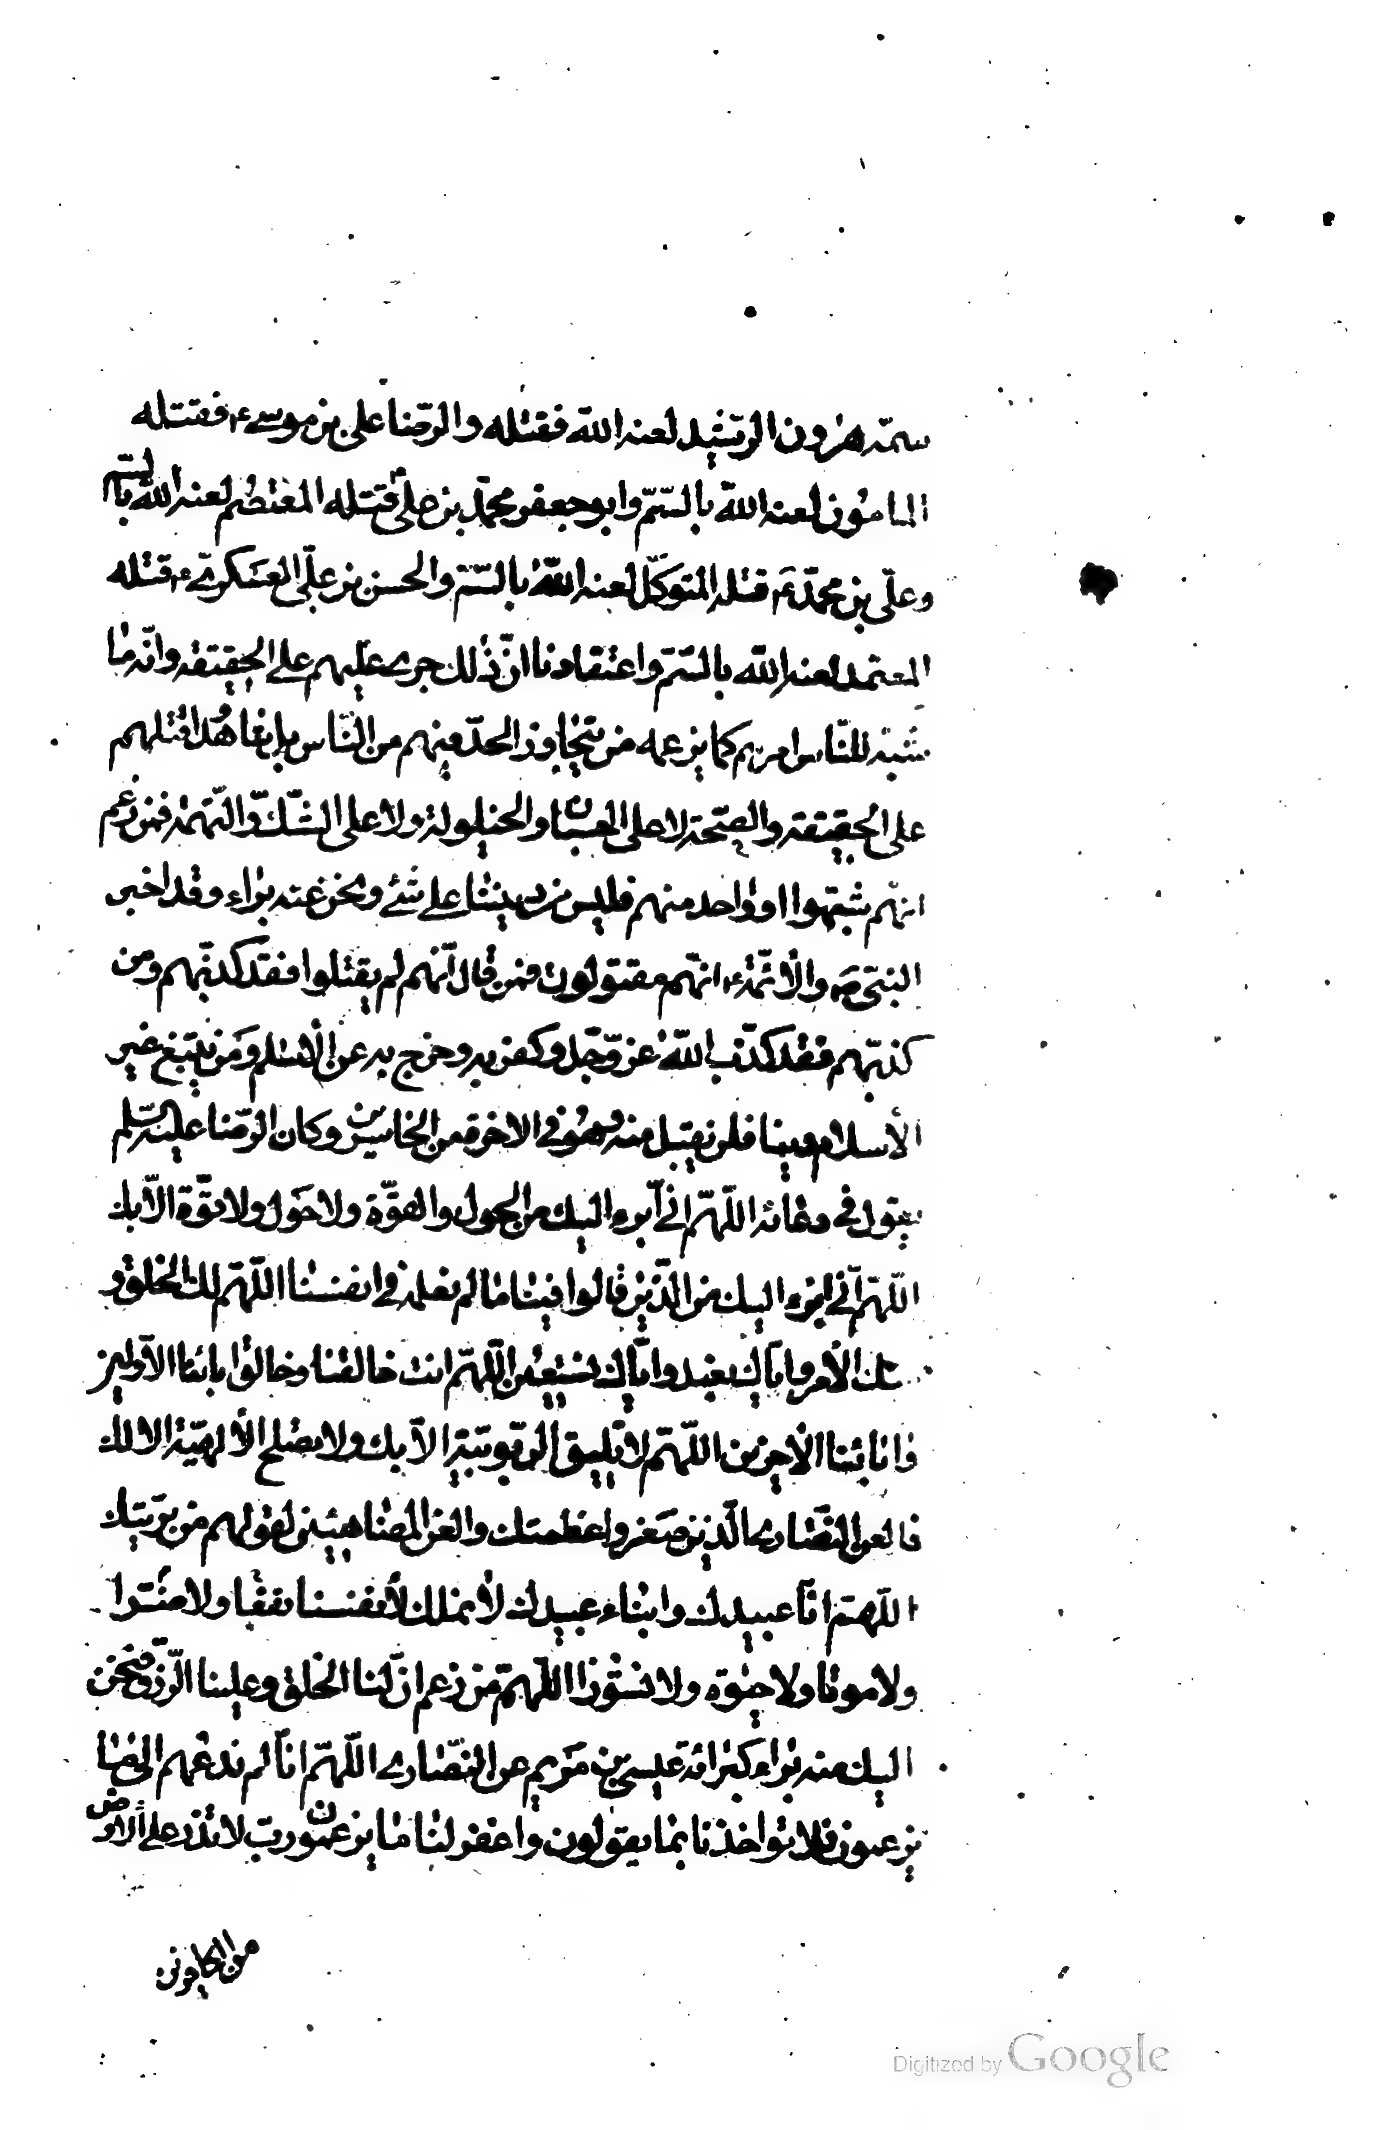 سمّه هرون الرّشيد لعنه اللّه فقتله والرّضا علي بن موسى ع فقتله
المامون لعنه اللّه بالسّمّ وابو جعفر محمّد بن علي ع قتله المعتصم لعنه اللّه بالسّم
وعلّي بن محمّد ع قتله المتوكّل لعنه اللّه بالسّمّ والحسن بن علّي العسكرىّ ع قتله
المعتمد لعنه اللّه بالسّمّ واعتقادنا انّ ذلك جرى عليهم على الحقيقة وانّه ما
شبّه للنّاس امرهم كما يزعمه من يتجاوز الحدّ فيهم من النّاس بل شاهدوا قتلهم
على الحقيقة والصّحة لا على الحسبان والحيلولة ولا على الشّكّ والتّهمة فمن زعم
انهم شبّهوا او واحد منهم فليس من ديننا على شئ ونحن عنه براء وقد اخبر
النبّى ص والأئمّة ع انهّم مقتولون فمن قال انّهم لم يقتلوا فقد كذبّهم ومن
كذبّهم فقد كذّب اللّه عزّ وجّل وكفر به وخرج به عن الاسلم ومن يبتغ غير
الأسلام دينا فلن يقبل منه وهو في الاخرة من الخاسرين وكان الرّضا عليه السّلم
يقول في دعائه اللّهمّ انّي أبرء اليك من الحول والقوّة ولا حول ولا قوّة الّا بك
اللّهمّ انّي ابرء اليك من الّذين قالوا فينا ما لم نعلمه في انفسنا اللّهمّ لك الخلق و
منك الأمر وايّاك نعبد وايّاك نستعين اللّهمّ انت خالقنا وخالق ابائنا الاّولين
وابائنا الأخرين اللّهمّ لا تليق الرّبوبيّة الاّ بك ولا يصلح الألهيّة الا لك
فالعن النّصارى الّذين صغروا عظمتك والعن المضاهئين لقولهم من بريّتك
اللّهمّ انّا عبيدك وابناء عبيدك لا نملك لأنفسنا نفعا ولا ضّرا
ولا موتا ولا حيوة ولا نشورا اللّهمّ من زعم انّ لنا الخلق وعلينا الرّزق فنحن
اليك منه براء كبرائة عيسى بن مريم عن النّصارى اللّهمّ انّا لم ندعهم الى ما
يزعمون فلا تؤاخذنا بما يقولون واغفر لنا ما يزعمون ربّ لا تذر على الارض
من الكافرين
Digitized by Google